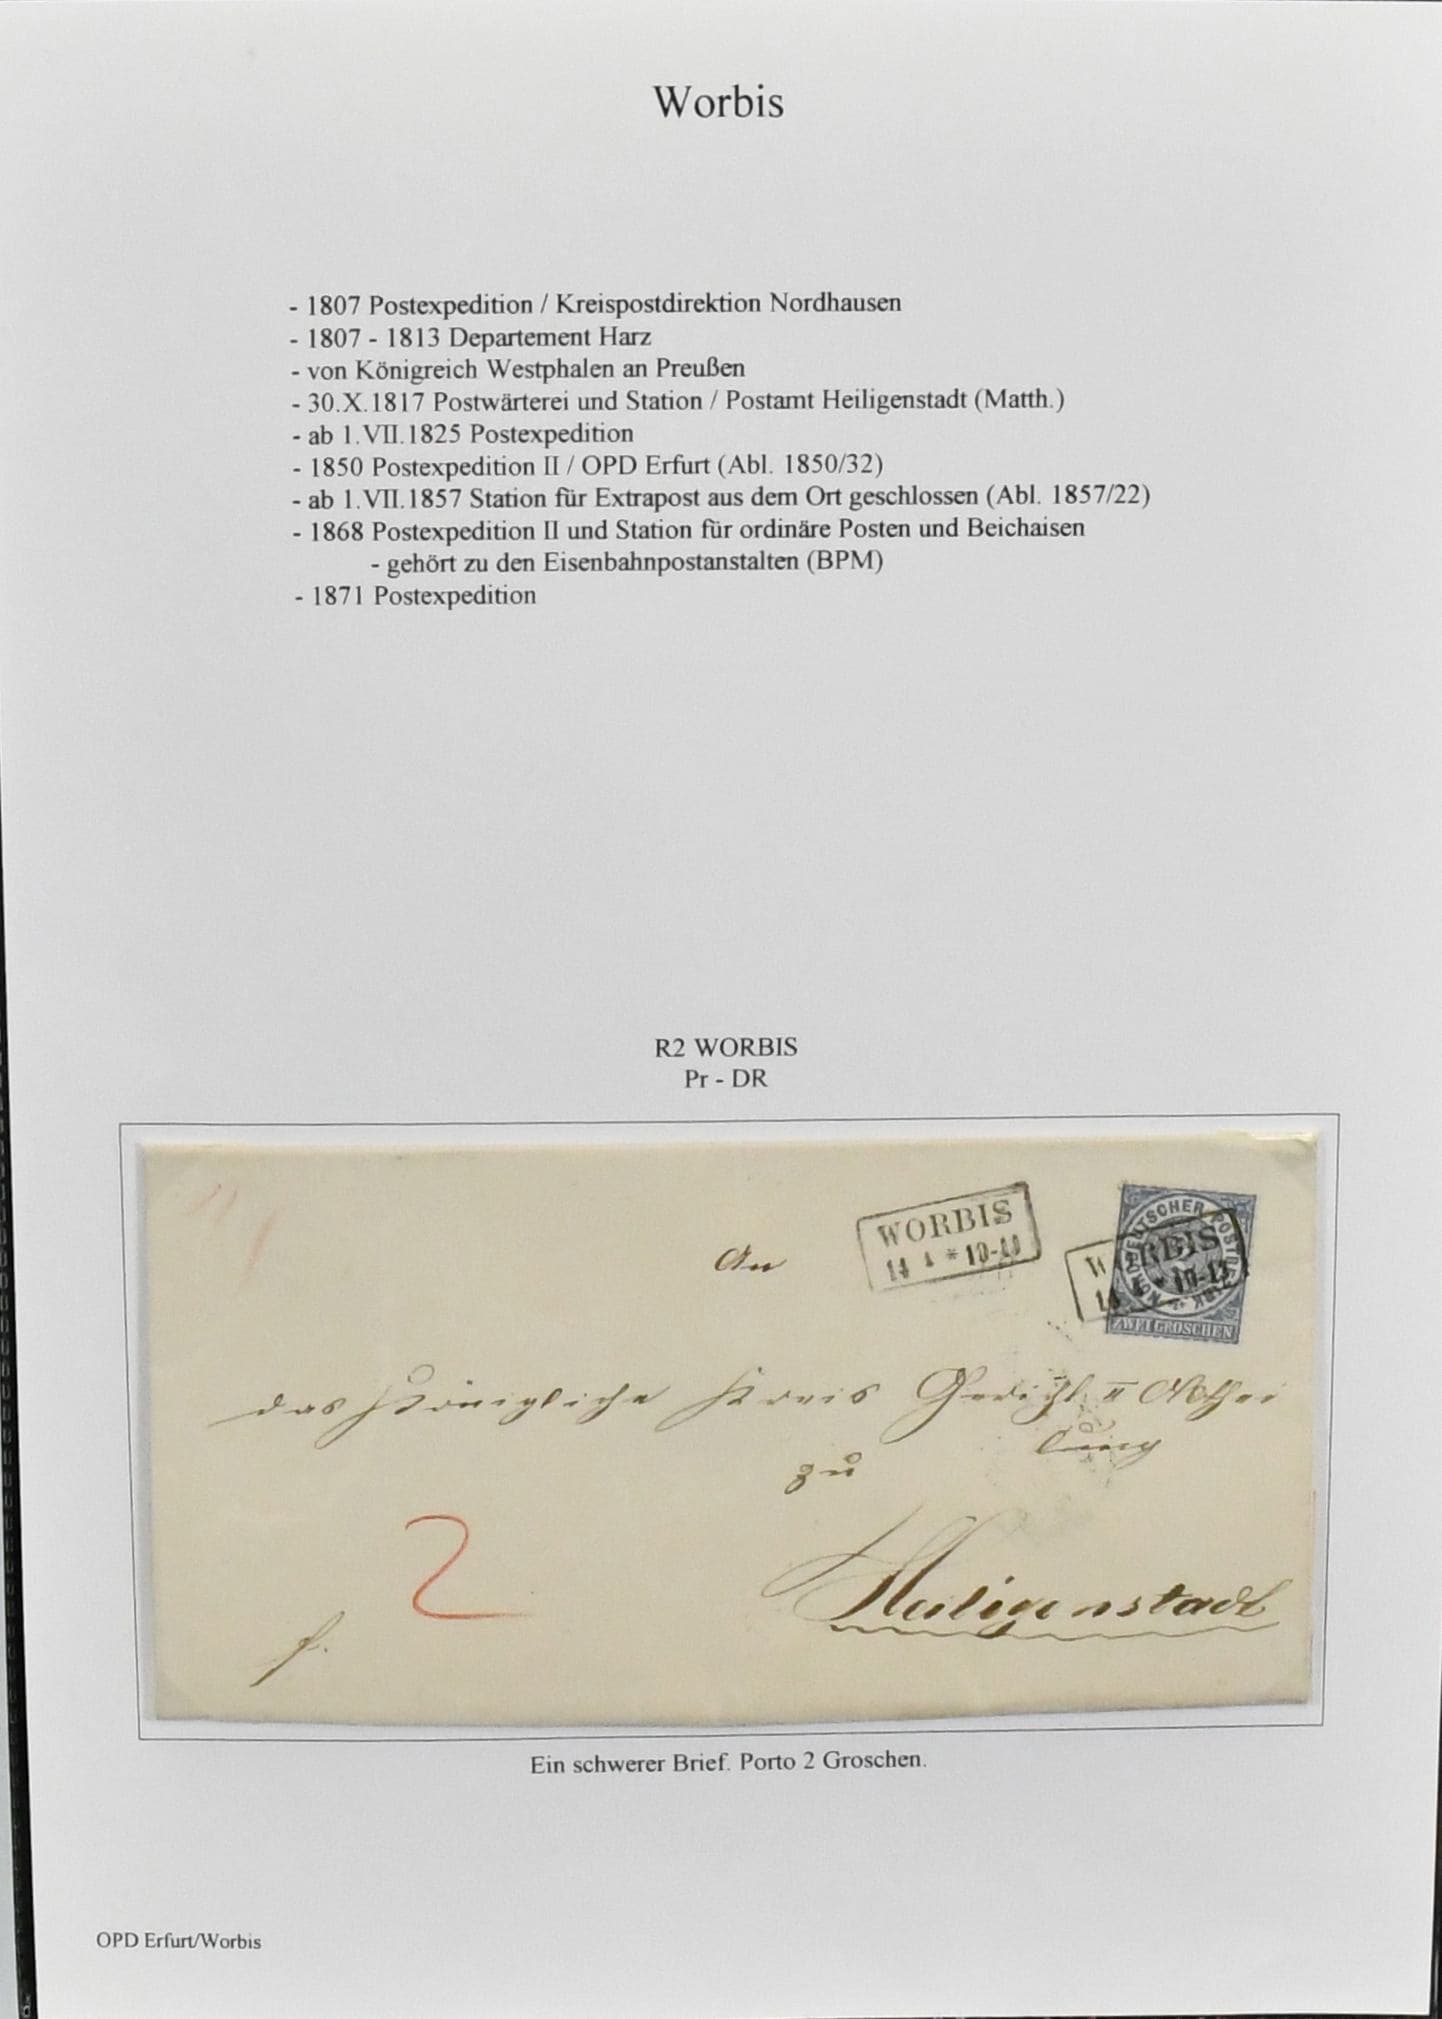 Worbis
- 1807 Postexpedition / Kreispostdirektion Nordhausen
- 1807 - 1813 Departement Harz
- von Königreich Westphalen an Preußen
- 30.X.1817 Postwärterei und Station / Postamt Heiligenstadt (Matth.)
- ab 1.VII.1825 Postexpedition
- 1850 Postexpedition II / OPD Erfurt (Abl. 1850/32)
- ab 1.VII.1857 Station für Extrapost aus dem Ort geschlossen (Abl. 1857/22)
- 1868 Postexpedition II und Station für ordinäre Posten und Beichaisen
- gehört zu den Eisenbahnpostanstalten (BPM)
- 1871 Postexpedition
R2 WORBIS
Pr - DR
WORBIS
14 * 10-11
NORDDEUTSCHER POSTBEZIRK
WORBIS
14 * 10-11
ZWEI GROSCHEN
An
das Königliche Kreis Gericht II Abthei
lung
zu
2
Heiligenstadt
f.
Ein schwerer Brief. Porto 2 Groschen.
OPD Erfurt/Worbis